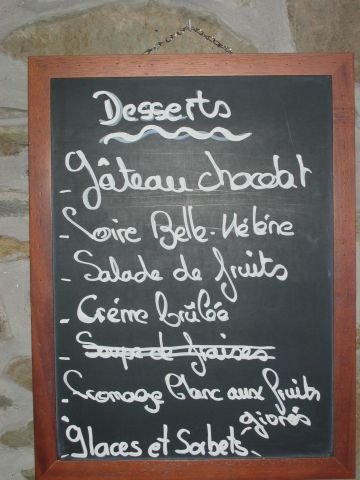 Desserts
- Gâteau chocolat
- Poire Belle-Hélène
- Salade de fruits
- Crème brûlée
- Soupe de fraises
- Fromage blanc aux fruits
givrés
- Glaces et Sorbets -